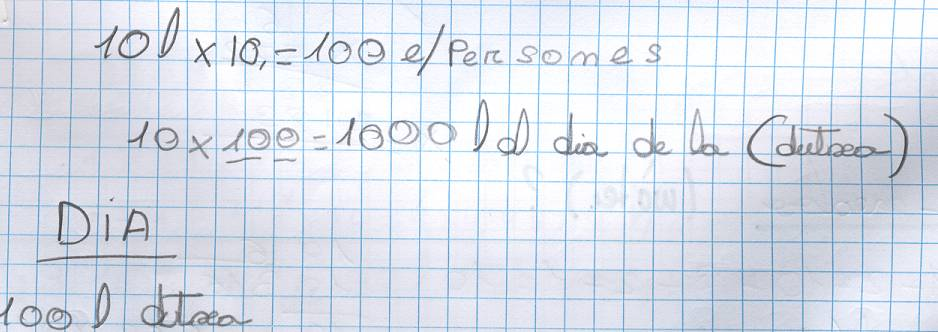 10 l x 10, = 100 l/Persones
10 x 100 = 1000 l al dia de la (dutxa)
DiA
100 l dutxa